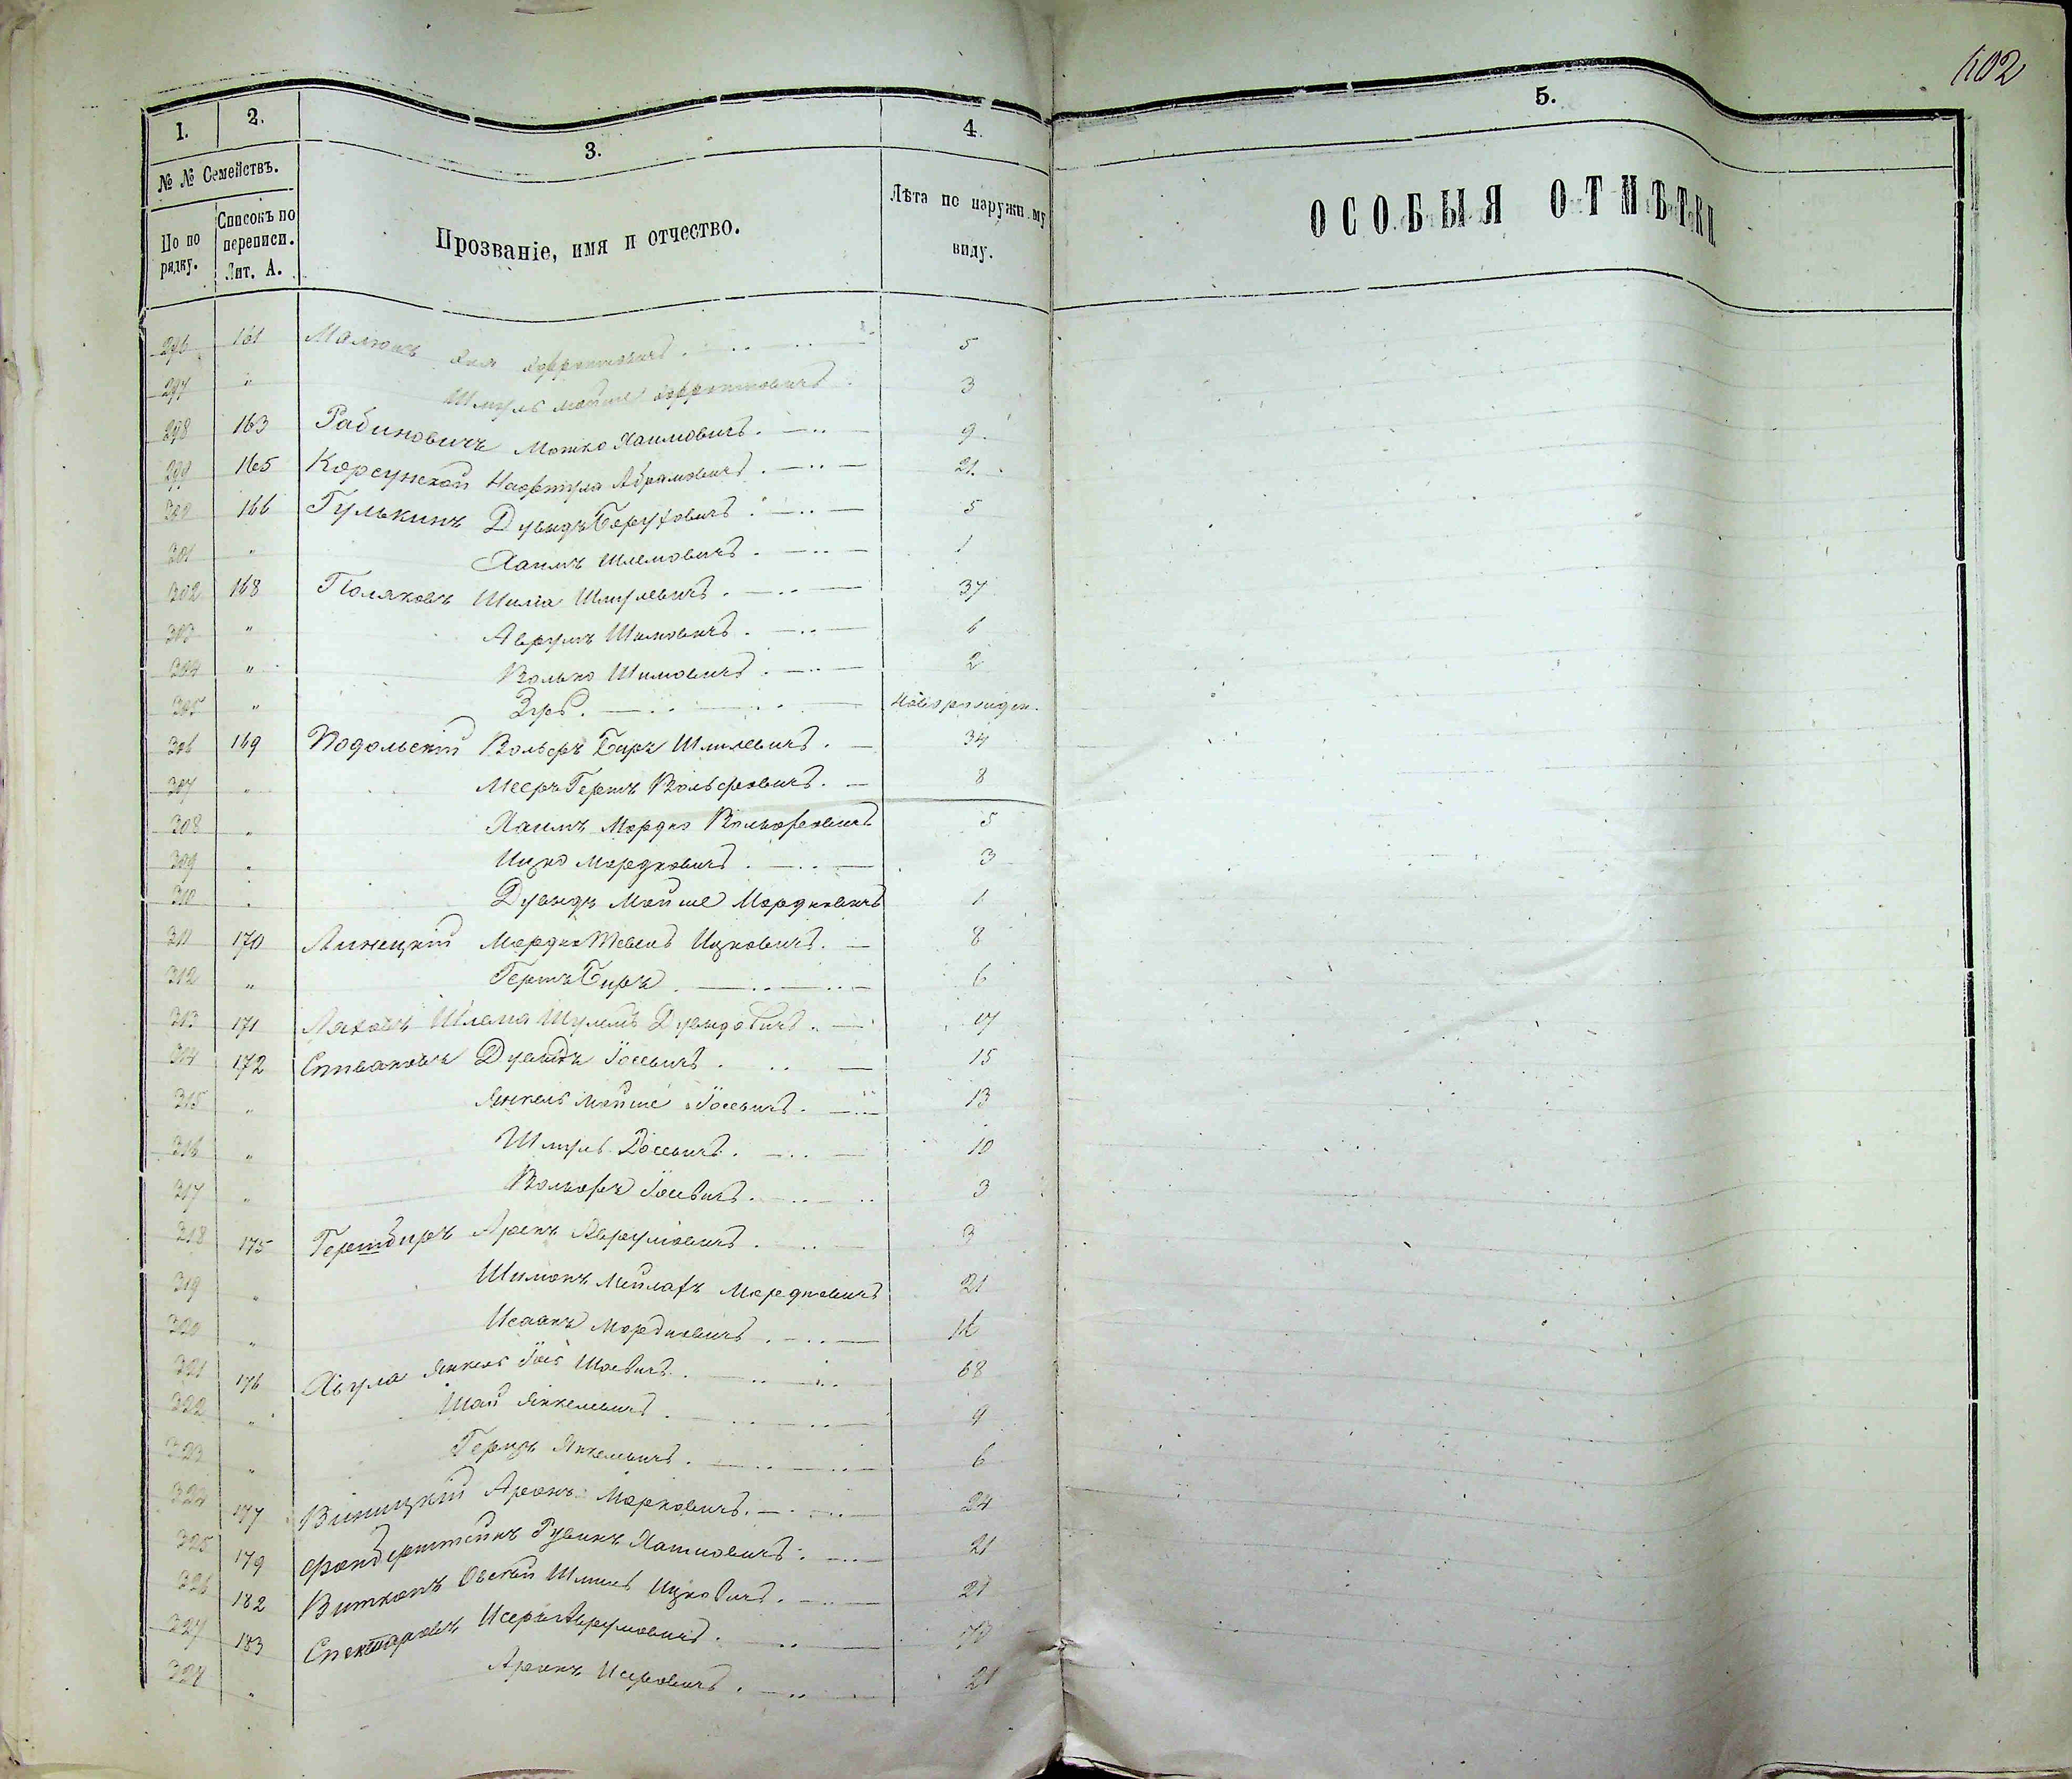 102
1. 2. 3. 4. 5.
№ № Семействъ.
По порядку.
Списокъ по переписи. Лит. А.
Прозваніе, имя и отчество.
Лѣта по наружному виду.
ОСОБЫЯ ОТМѢТКИ
296 161 5
297 " Шмуль Мойше 3
298 163 Рабиновичъ Мошко Хаимовичъ. 9
299 165 Корсунской Нафтула Абрамовичъ. 21
300 166 Гулькинъ Дувидъ Беруховичъ. 5
301 " Хаимъ Шлемовичъ. 1
302 168 Поляковъ Шима Шмулевичъ. 37
303 " Аврумъ Шимовичъ. 6
304 " Волько Шимовичъ. 2
305 " Зусь. Новорожден.
306 169 Подольскій Вольфъ Беръ Шмилевичъ. 34
307 " Мееръ Гершъ Вольфовичъ. 8
308 " Хаимъ Мордко Вольфовичъ 5
309 " Ицко Мордковичъ. 3
310 " Дувидъ Мойше Мордковичъ 1
311 170 Линецкій Мордко Ицковичъ. 8
312 " Гершъ Беръ 6
313 171 Ляховъ Шлема Шулимъ Дувидовичъ. 17
314 172 Спиваковъ Дувидъ Іосевичъ. 15
315 " Янкель Мойше Іосевичъ. 13
316 " Шмуль Іосевичъ. 10
317 " Вольфъ Іосевичъ. 3
318 175 Гершбиръ Аронъ Аврумовичъ. 3
319 " Шимонъ Мордковичъ 21
320 " Исаакъ Мордковичъ. 16
321 176 Янкель Іось Шаевичъ. 68
322 " Шай Янкелевичъ. 9
323 " Герцъ Янкелевичъ. 6
324 177 Виницкій Аронъ Марковичъ. 24
325 179 Рувинъ Хаимовичъ. 21
326 182 Виткопъ Овсей Шмиль Ицковичъ. 21
327 183 Спектаровъ Исеръ Аврумовичъ.
328 " Аронъ Исеровичъ. 21